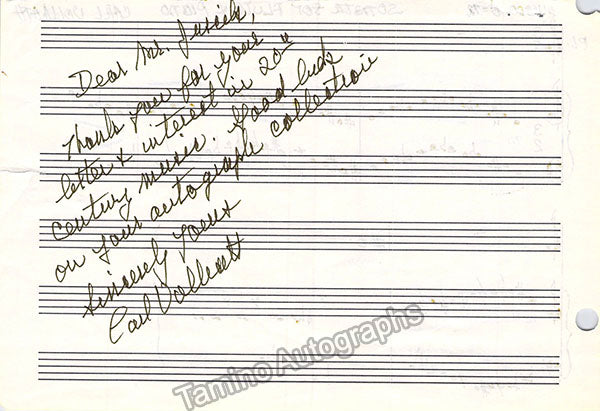 Dear Mr. Jusick,
Thank you for your
letter & interest in 20th
century music. Good luck
on your autograph collection
Sincerely yours
Carl Vollrath
Tamino Autographs